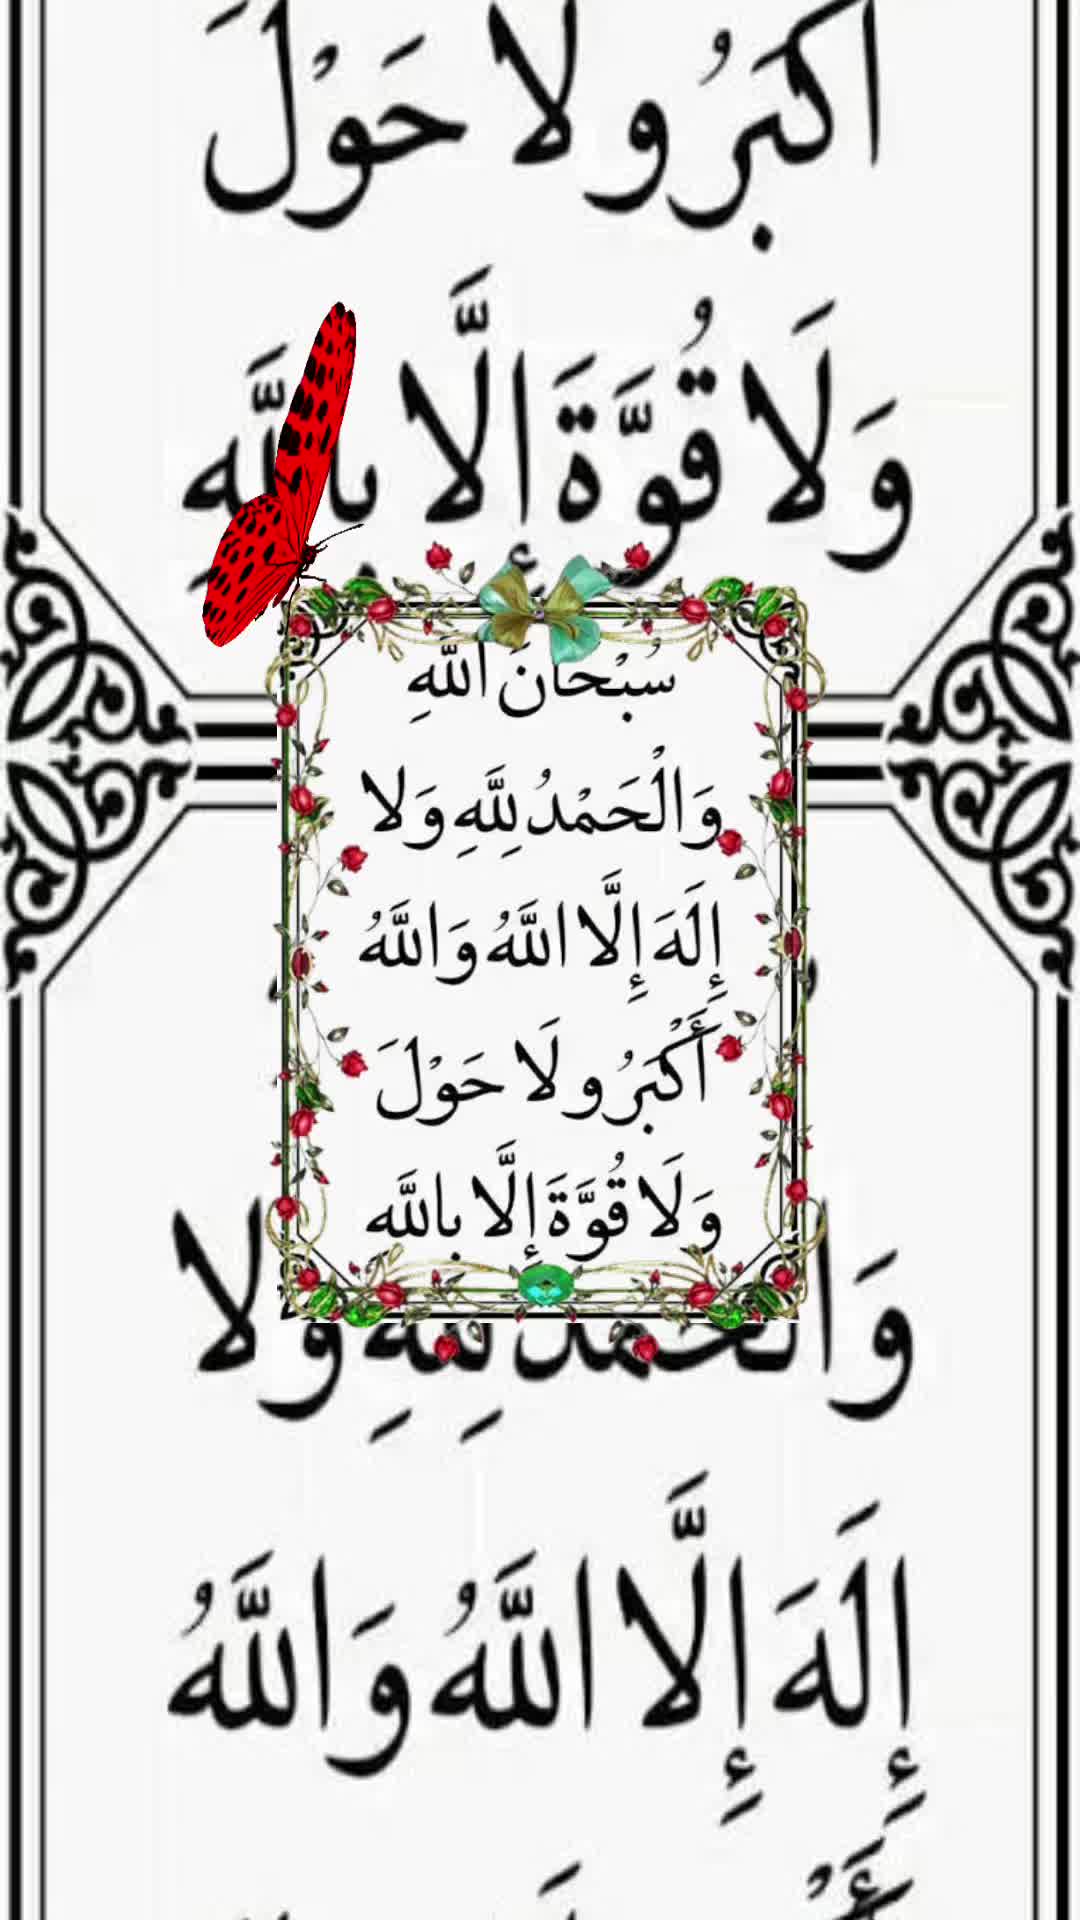 أَكْبَرُ ولَا حَوْلَ
وَلَا قُوَّةَ إِلَّا بِاللَّهِ
سُبْحانَ اللَّهِ
وَالْحَمْدُ لِلَّهِ وَلا
إِلَهَ إِلَّا اللَّهُ وَاللَّهُ
أَكْبَرُ ولَا حَوْلَ
وَلَا قُوَّةَ إِلَّا بِاللَّهِ
وَالْحَمْدُ لِلَّهِ وَلا
إِلَهَ إِلَّا اللَّهُ وَاللَّهُ